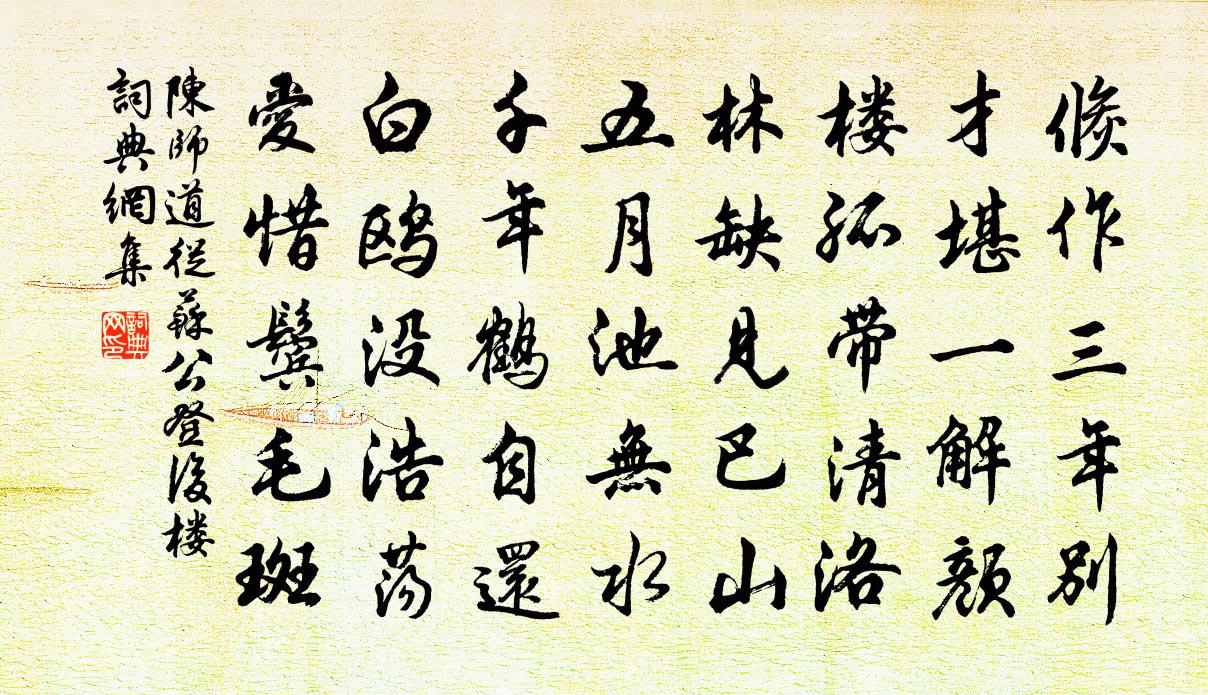 倏作三年别
才堪一解颜
楼孤带清洛
林缺見巴山
五月池無水
千年鶴自還
白鸥没浩荡
愛惜鬓毛斑
陳師道從蘇公登後楼
詞典網集
詞典网印